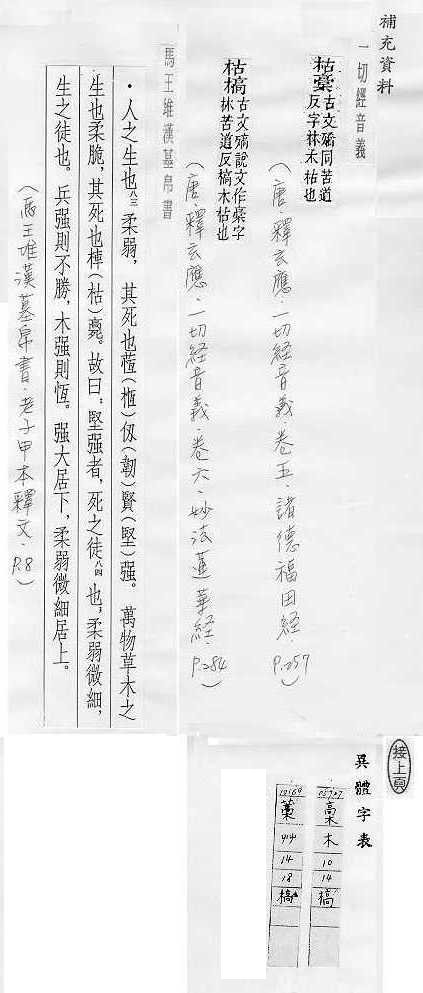 補充資料
一切經音義
枯槀古文𣩩同苦道
反字林禾枯也
（唐．釋玄應．一切経音義．卷五．諸德福田経．P.257）
枯槁古文𣩩說文作槀字
林苦道反槁木枯也
（唐．釋玄應．一切経音義．卷六．妙法蓮華経．P.284）
馬王堆漢墓帛書
・人之生也八三柔弱，其死也𦸣（㮓）仞（韌）賢（堅）强。萬物草木之
生也柔脆，其死也桲（枯）薨。故曰：堅强者，死之徒八四也，柔弱微細，
生之徒也。兵强則不勝，木强則恆。强大居下，柔弱微細居上。
（馬王堆漢墓帛書．老子甲本釋文．P.8）
接上頁
異體字表
槀
木
10
14
槁
藁
艸
14
18
槁